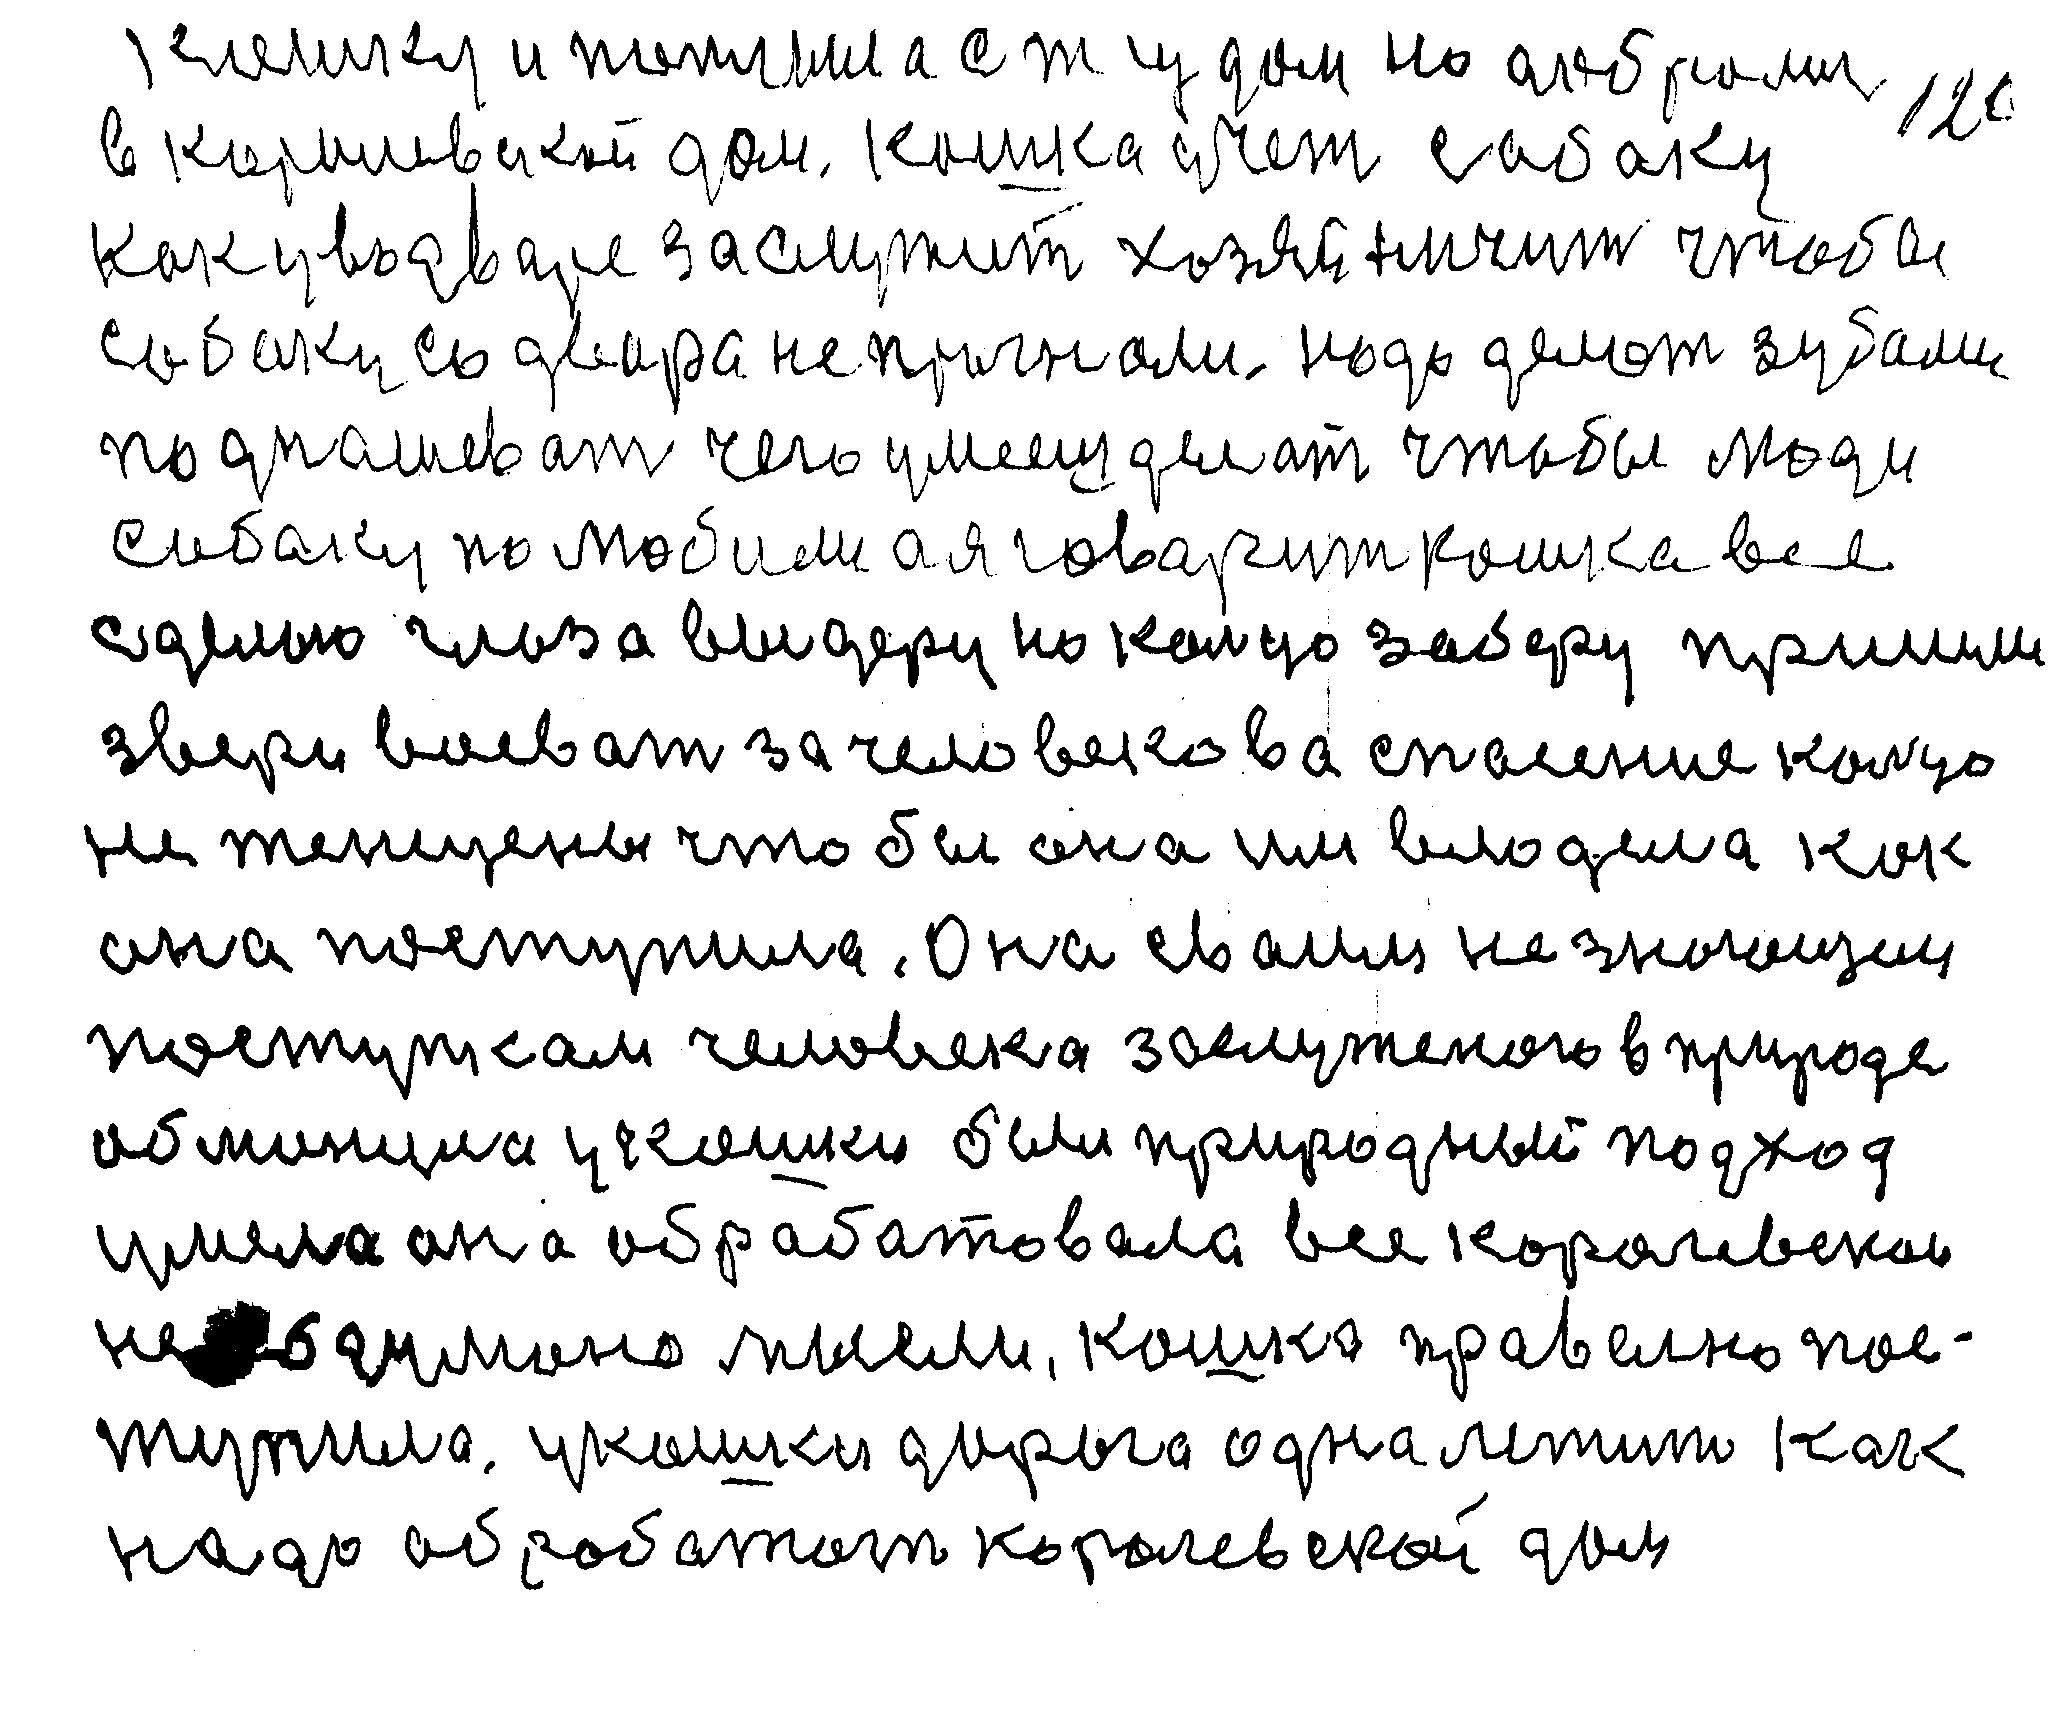 клешку и потшила с т чудом но добролиц
в королевской дом. кошка учет собаку
как уводваре заслужит хозяйничит чтобы
собаку со двора не пригнали. нодо делот зубами
поднашеват чего умееш делат чтобы люди
собаку полюбили а я говарит кошка все
сделою глоза выдеру но колцо заберу пришли
звери воеват за человекова спасение колцо
не женщены что бы она им влодела как
она поступила. Она сваим не зноющим
поступкам человека заслуженого в природе
обмонула у кошки были природный подход
умела она обрабатовала все королевскои
не обдумоно мысли. кошка правелно пос-
тупила. у кошки дорога одна летит как
надо обработот королевской дом